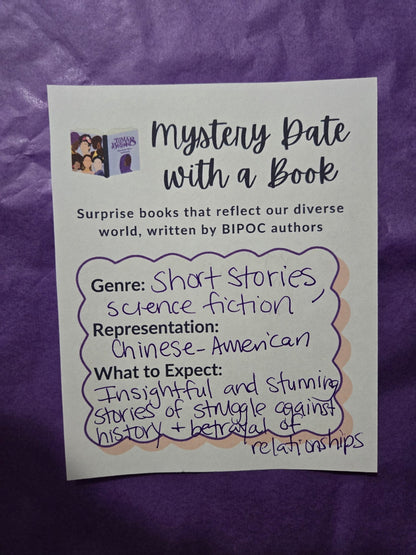 Mystery Date
with a Book
Surprise books that reflect our diverse
world, written by BIPOC authors
Genre: Short Stories,
science fiction
Representation:
Chinese-American
What to Expect:
Insightful and stunning
stories of struggle against
history + betrayal of
relationships